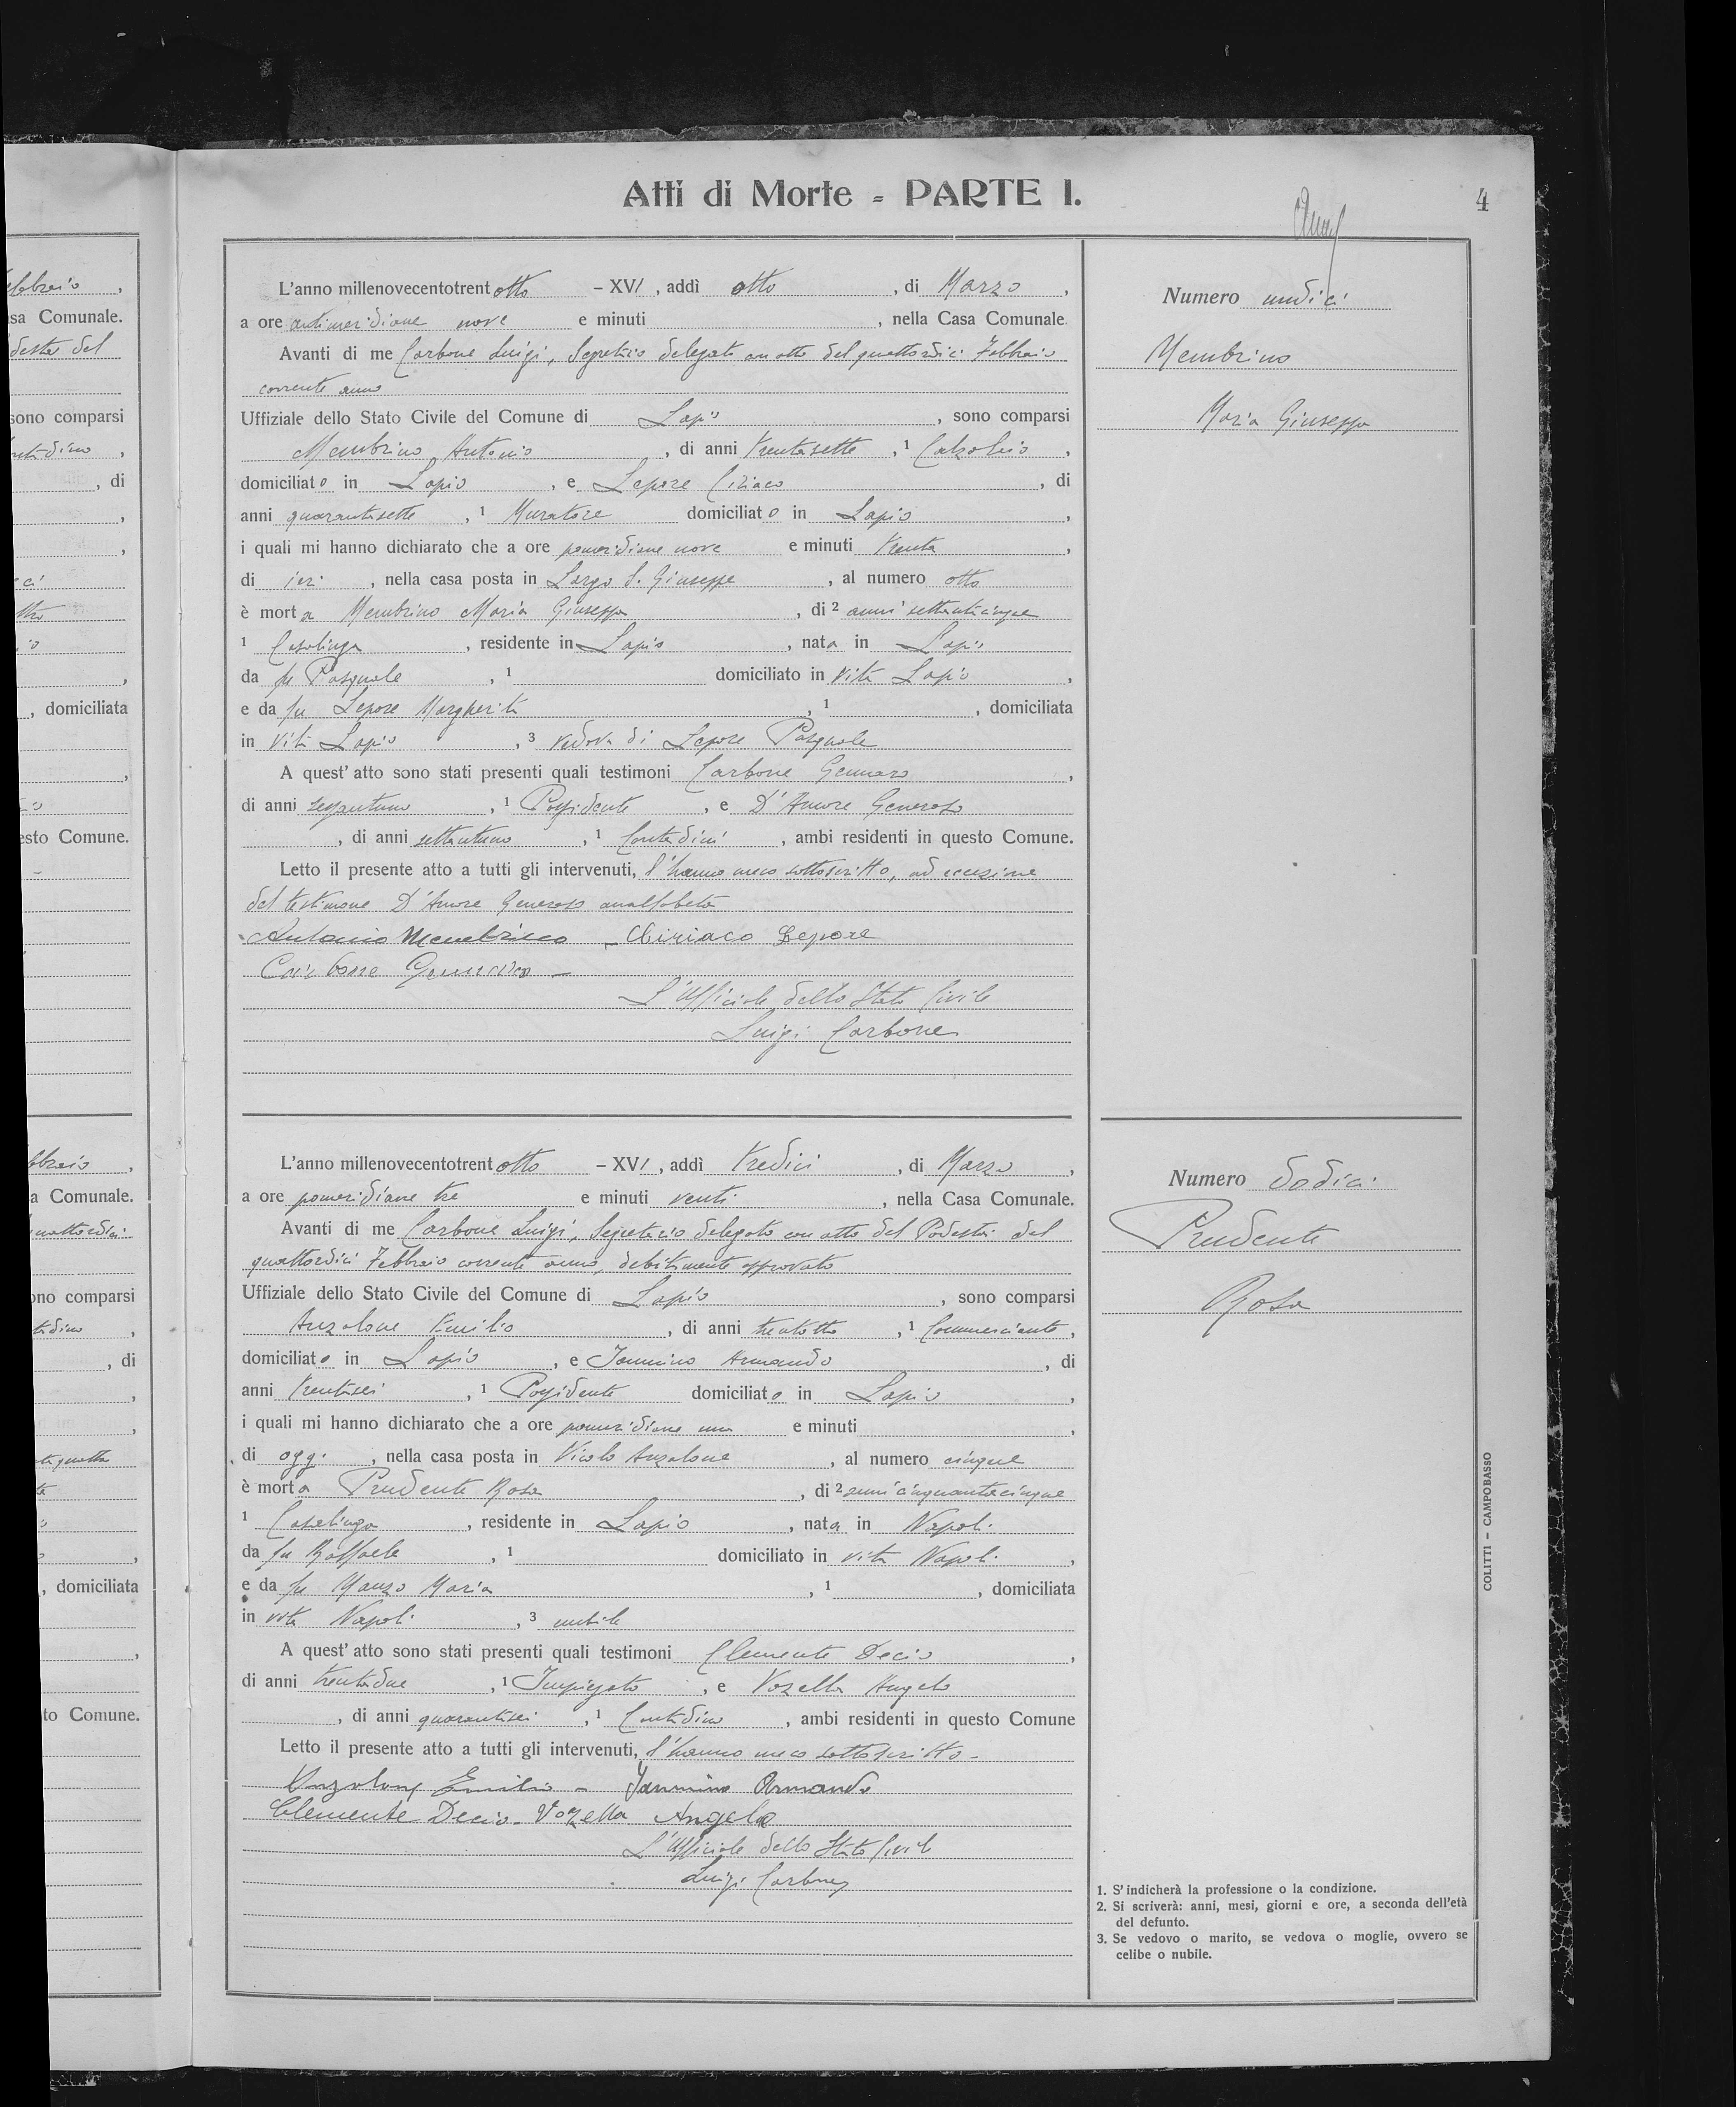 ebbraio,
sa Comunale.
sono comparsi
, di
, domiciliata
esto Comune.
a Comunale.
ono comparsi
, di
, domiciliata
to Comune.
Atti di Morte = PARTE I.
4
L'anno millenovecentotrent otto - XVI, addì otto, di Marzo,
a ore antimeridiane nove e minuti , nella Casa Comunale.
Avanti di me Carbone Luigi, Segretario delegato con atto del quattordici Febbraio
corrente anno
Uffiziale dello Stato Civile del Comune di Lapio, sono comparsi
Membrino Antonio, di anni trentasette, 1 Calzolaio,
domiciliato in Lapio, e Lepore Ciriaco, di
anni quarantasette, 1 Muratore domiciliato in Lapio,
i quali mi hanno dichiarato che a ore pomeridiane nove e minuti trenta,
di ieri, nella casa posta in Largo S. Giuseppe, al numero otto
è morta Membrino Maria Giuseppa, di 2 anni settantacinque
1 Casalinga, residente in Lapio, nata in Lapio
da fu Pasquale, 1 domiciliato in vita Lapio,
e da fu Lepore Margherita, 1 , domiciliata
in vita Lapio, 3 vedova di Lepore Pasquale
A quest' atto sono stati presenti quali testimoni Carbone Gennaro,
di anni sessantuno, 1 Possidente, e D'Amore Generoso
, di anni settantuno, 1 Contadini, ambi residenti in questo Comune.
Letto il presente atto a tutti gli intervenuti, l'hanno meco sottoscritto, ad eccezione
del testimone D'Amore Generoso analfabeta
Antonio Membrino - Chiriaco Lepore
Carbone Gennaro -
L'Ufficiale dello Stato Civile
Luigi Carbone
Numero undici
Membrino
Maria Giuseppa
L'anno millenovecentotrent otto - XVI, addì tredici, di Marzo,
a ore pomeridiane tre e minuti venti, nella Casa Comunale.
Avanti di me Carbone Luigi, Segretario delegato con atto del Podestà del
quattordici Febbraio corrente anno, debitamente approvato
Uffiziale dello Stato Civile del Comune di Lapio, sono comparsi
Anzalone Emilio, di anni trentotto, 1 Commerciante,
domiciliato in Lapio, e Iannino Armando, di
anni trentasei, 1 Possidente domiciliato in Lapio,
i quali mi hanno dichiarato che a ore pomeridiane una e minuti ,
di oggi, nella casa posta in Vicolo Anzalone, al numero cinque
è morta Prudente Rosa, di 2 anni cinquantacinque
1 Casalinga, residente in Lapio, nata in Napoli
da fu Raffaele, 1 domiciliato in vita Napoli,
e da fu Manzo Maria, 1 , domiciliata
in vita Napoli, 3 nubile
A quest' atto sono stati presenti quali testimoni Clemente Decio,
di anni trentadue, 1 Impiegato, e Vozella Angelo
, di anni quarantasei, 1 Contadino, ambi residenti in questo Comune
Letto il presente atto a tutti gli intervenuti, l'hanno meco sottoscritto -
Anzalone Emilio - Jannino Armando
Clemente Decio - Vozella Angelo
L'Ufficiale dello Stato Civile
Luigi Carbone
Numero dodici
Prudente
Rosa
1. S' indicherà la professione o la condizione.
2. Si scriverà: anni, mesi, giorni e ore, a seconda dell'età
del defunto.
3. Se vedovo o marito, se vedova o moglie, ovvero se
celibe o nubile.
COLITTI - CAMPOBASSO